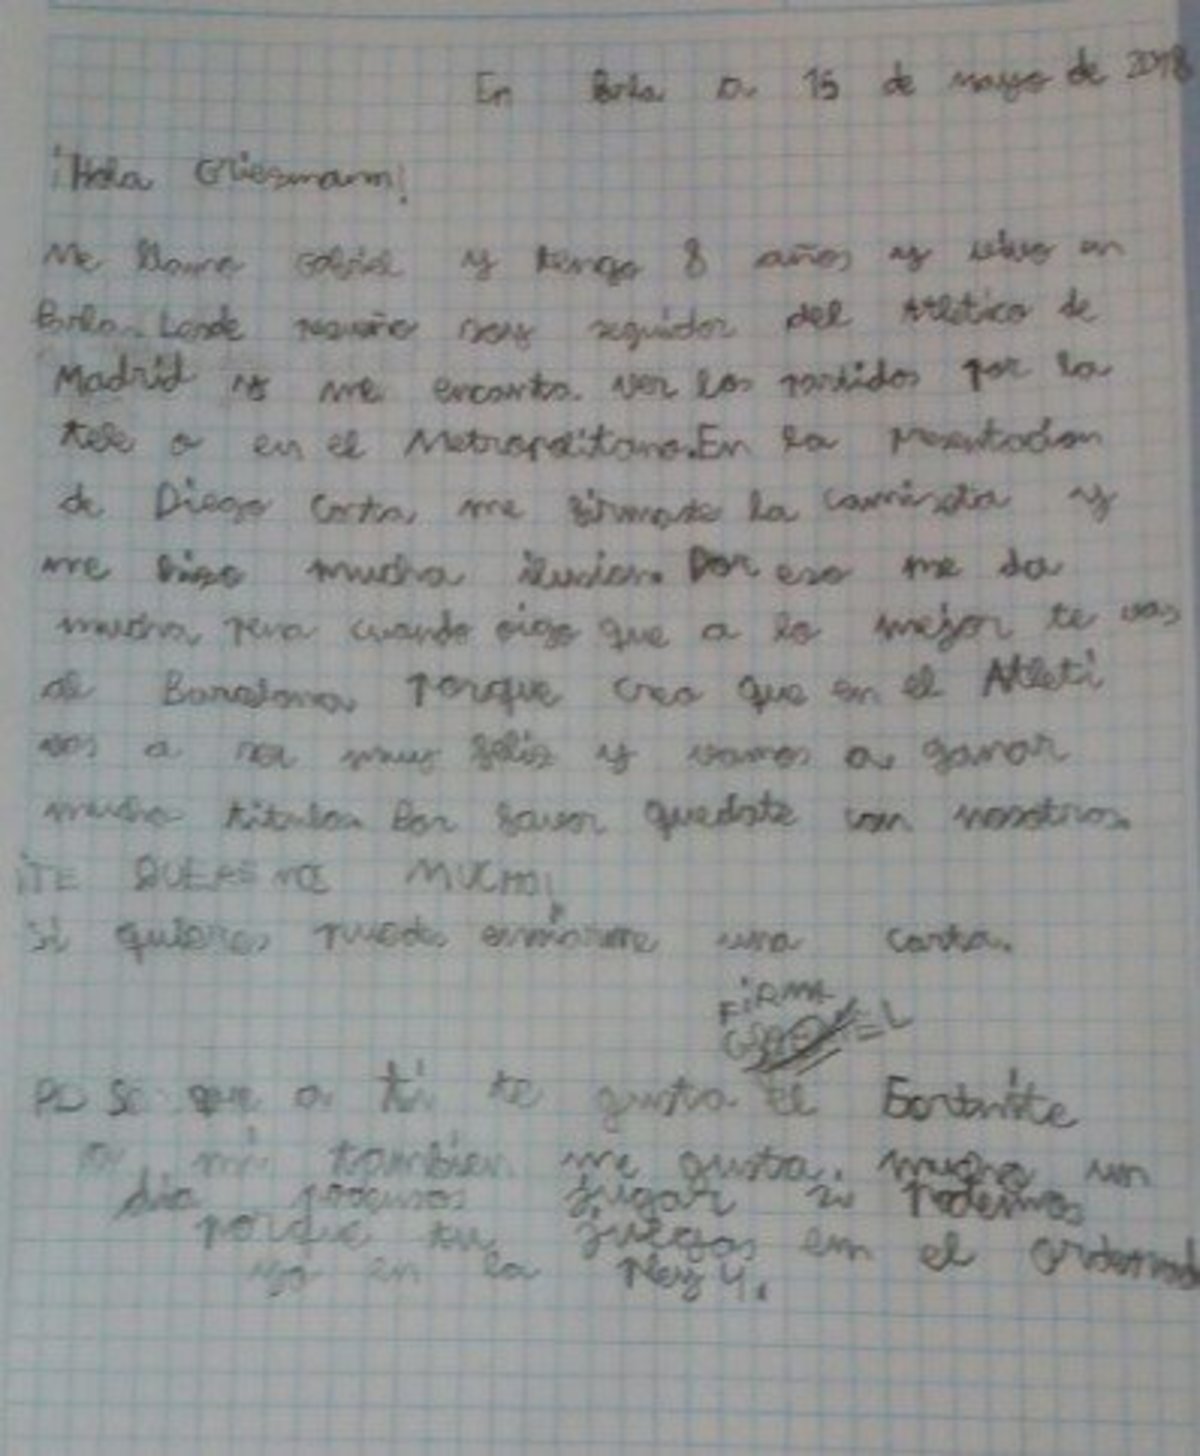 En Parla a 15 de mayo de 2018
¡Hola Griesmann!
Me llamo Gabriel y tengo 8 años y vivo en
Parla. Desde pequeño soy seguidor del Atlético de
Madrid y me encanta ver los partidos por la
tele o en el Metropolitano. En la presentacion
de Diego Costa, me firmaste la camiseta y
me hizo mucha ilusion. Por eso me da
mucha pena cuando oigo que a lo mejor te vas
al Barcelona, porque creo que en el Atleti
vas a ser muy feliz y vamos a ganar
mucho titulos. Por favor quedate con nosotros.
¡TE QUEREMOS MUCHO!
Si quieres puedes enviarme una carta.
FiRMA
PD Se que a ti te gusta el Fortnite
a mi tambien me gusta. mucho un
dia podemos jugar si podemos
porque tu juegas em el ordenad
yo en la Play 4.